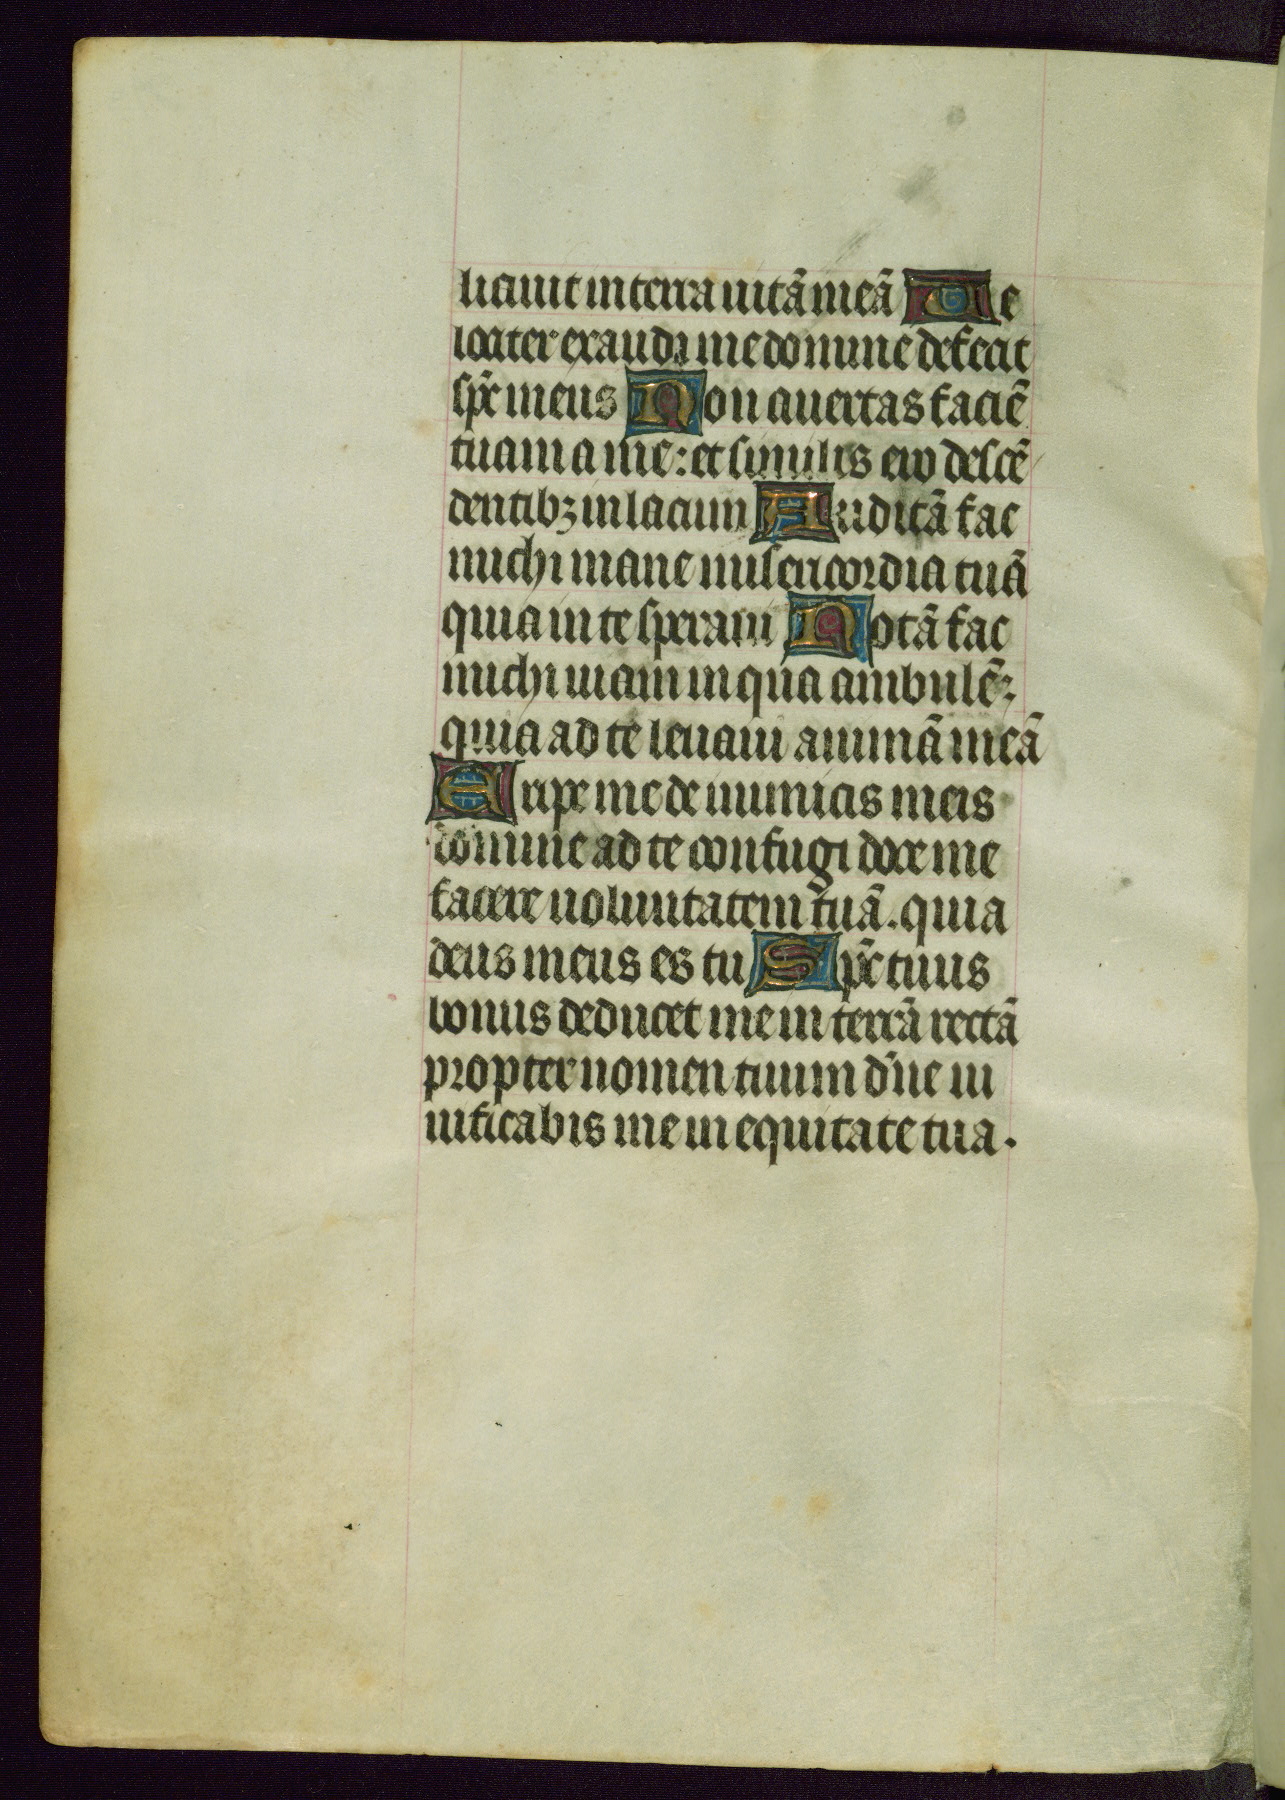 liciuit in terra uitā meā Ue
lociter exaudi me domine defecit
sp̄c meus Non auertas faciē
tuam a me: et similis ero descē
dentibꝫ in lacum Auditā fac
michi mane misericordia tuā
quia in te speraui Notā fac
michi uiam in qua ambulē:
quia ad te leuaui animā meā
Eripe me de inimicis meis
domine ad te confugi doce me
facere uoluntatem tuā. quia
deus meus es tu Sp̄c tuus
bonus deducet me in terrā rectā
propter nomen tuum d̄ne ui
uificabis me in equitate tua.